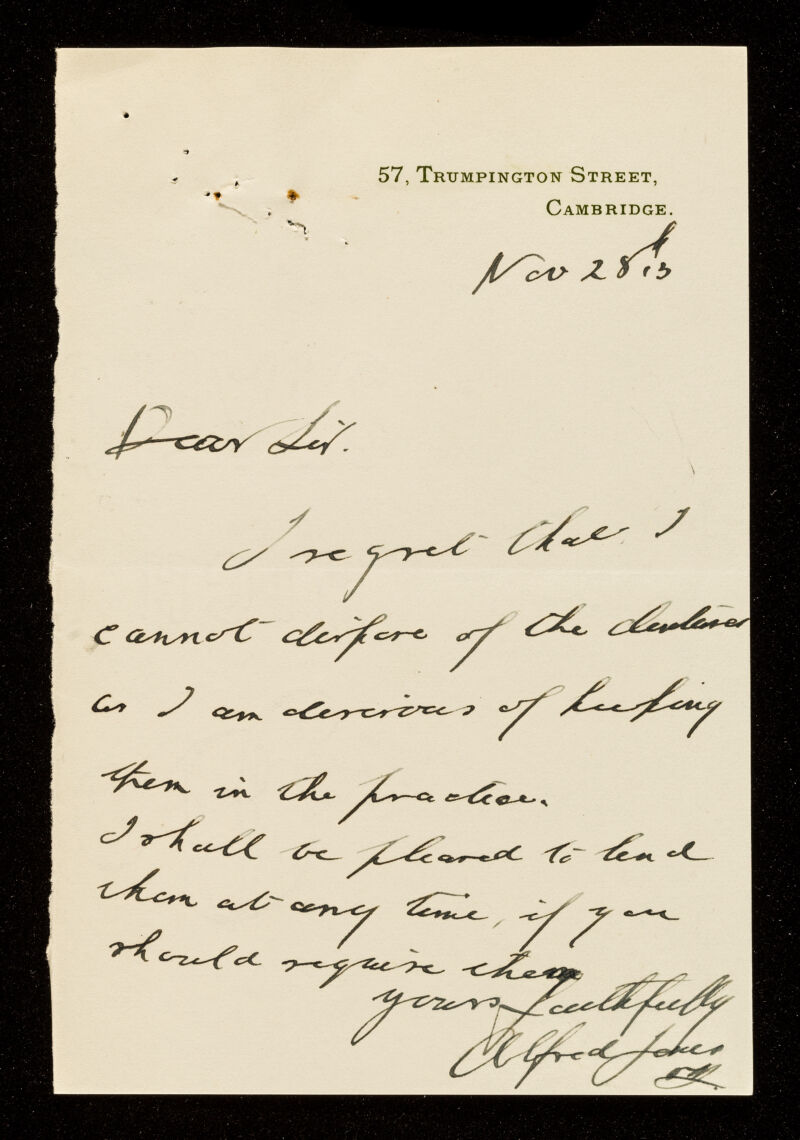 57, Trumpington Street,
Cambridge.
Nov 28th 13
Dear Sir.
I regret that I
cannot dispose of the dentures
as I am desirous of keeping
them in the practice.
I shall be pleased to lend
them at any time, if you
should require them
yours faithfully
Alfred Jones